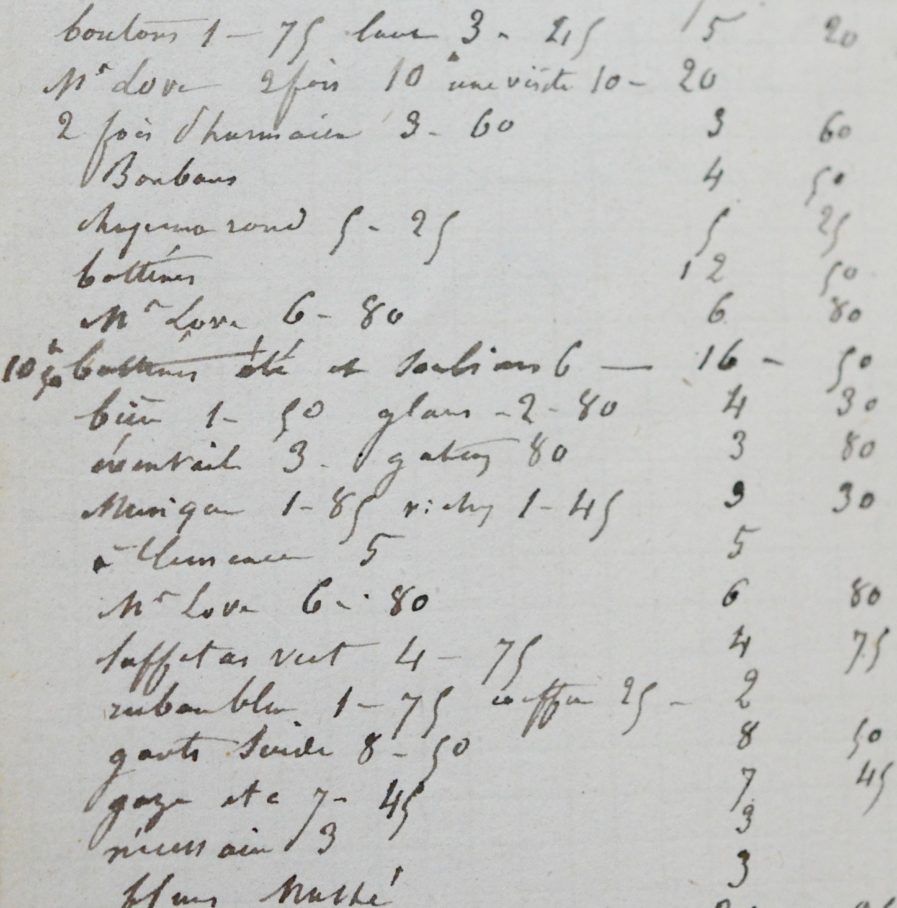 boutons 1 - 75 3 - 45 5 20
Mr Love 2 fois 10 une visite 10 - 20
2 fois 3 - 60 3 60
Bonbons 4 50
rond 5 - 25 5 25
bottines 12 50
Mr Love 6 - 80 6 80
10 50 bottines été et souliers 6 — 16 - 50
1 - 50 glans - 2 - 80 4 30
éventail 3 - gateau 80 3 80
1 - 85 vichy 1 - 45 3 30
à Clemence 5 5
Mr Love 6 - 80 6 80
taffetas vert 4 - 75 4 75
ruban bleu 1 - 75 25 - 2
gants Suède 8 - 50 8 50
gaze etc 7 - 45 7 45
nécessaire 3 3
3